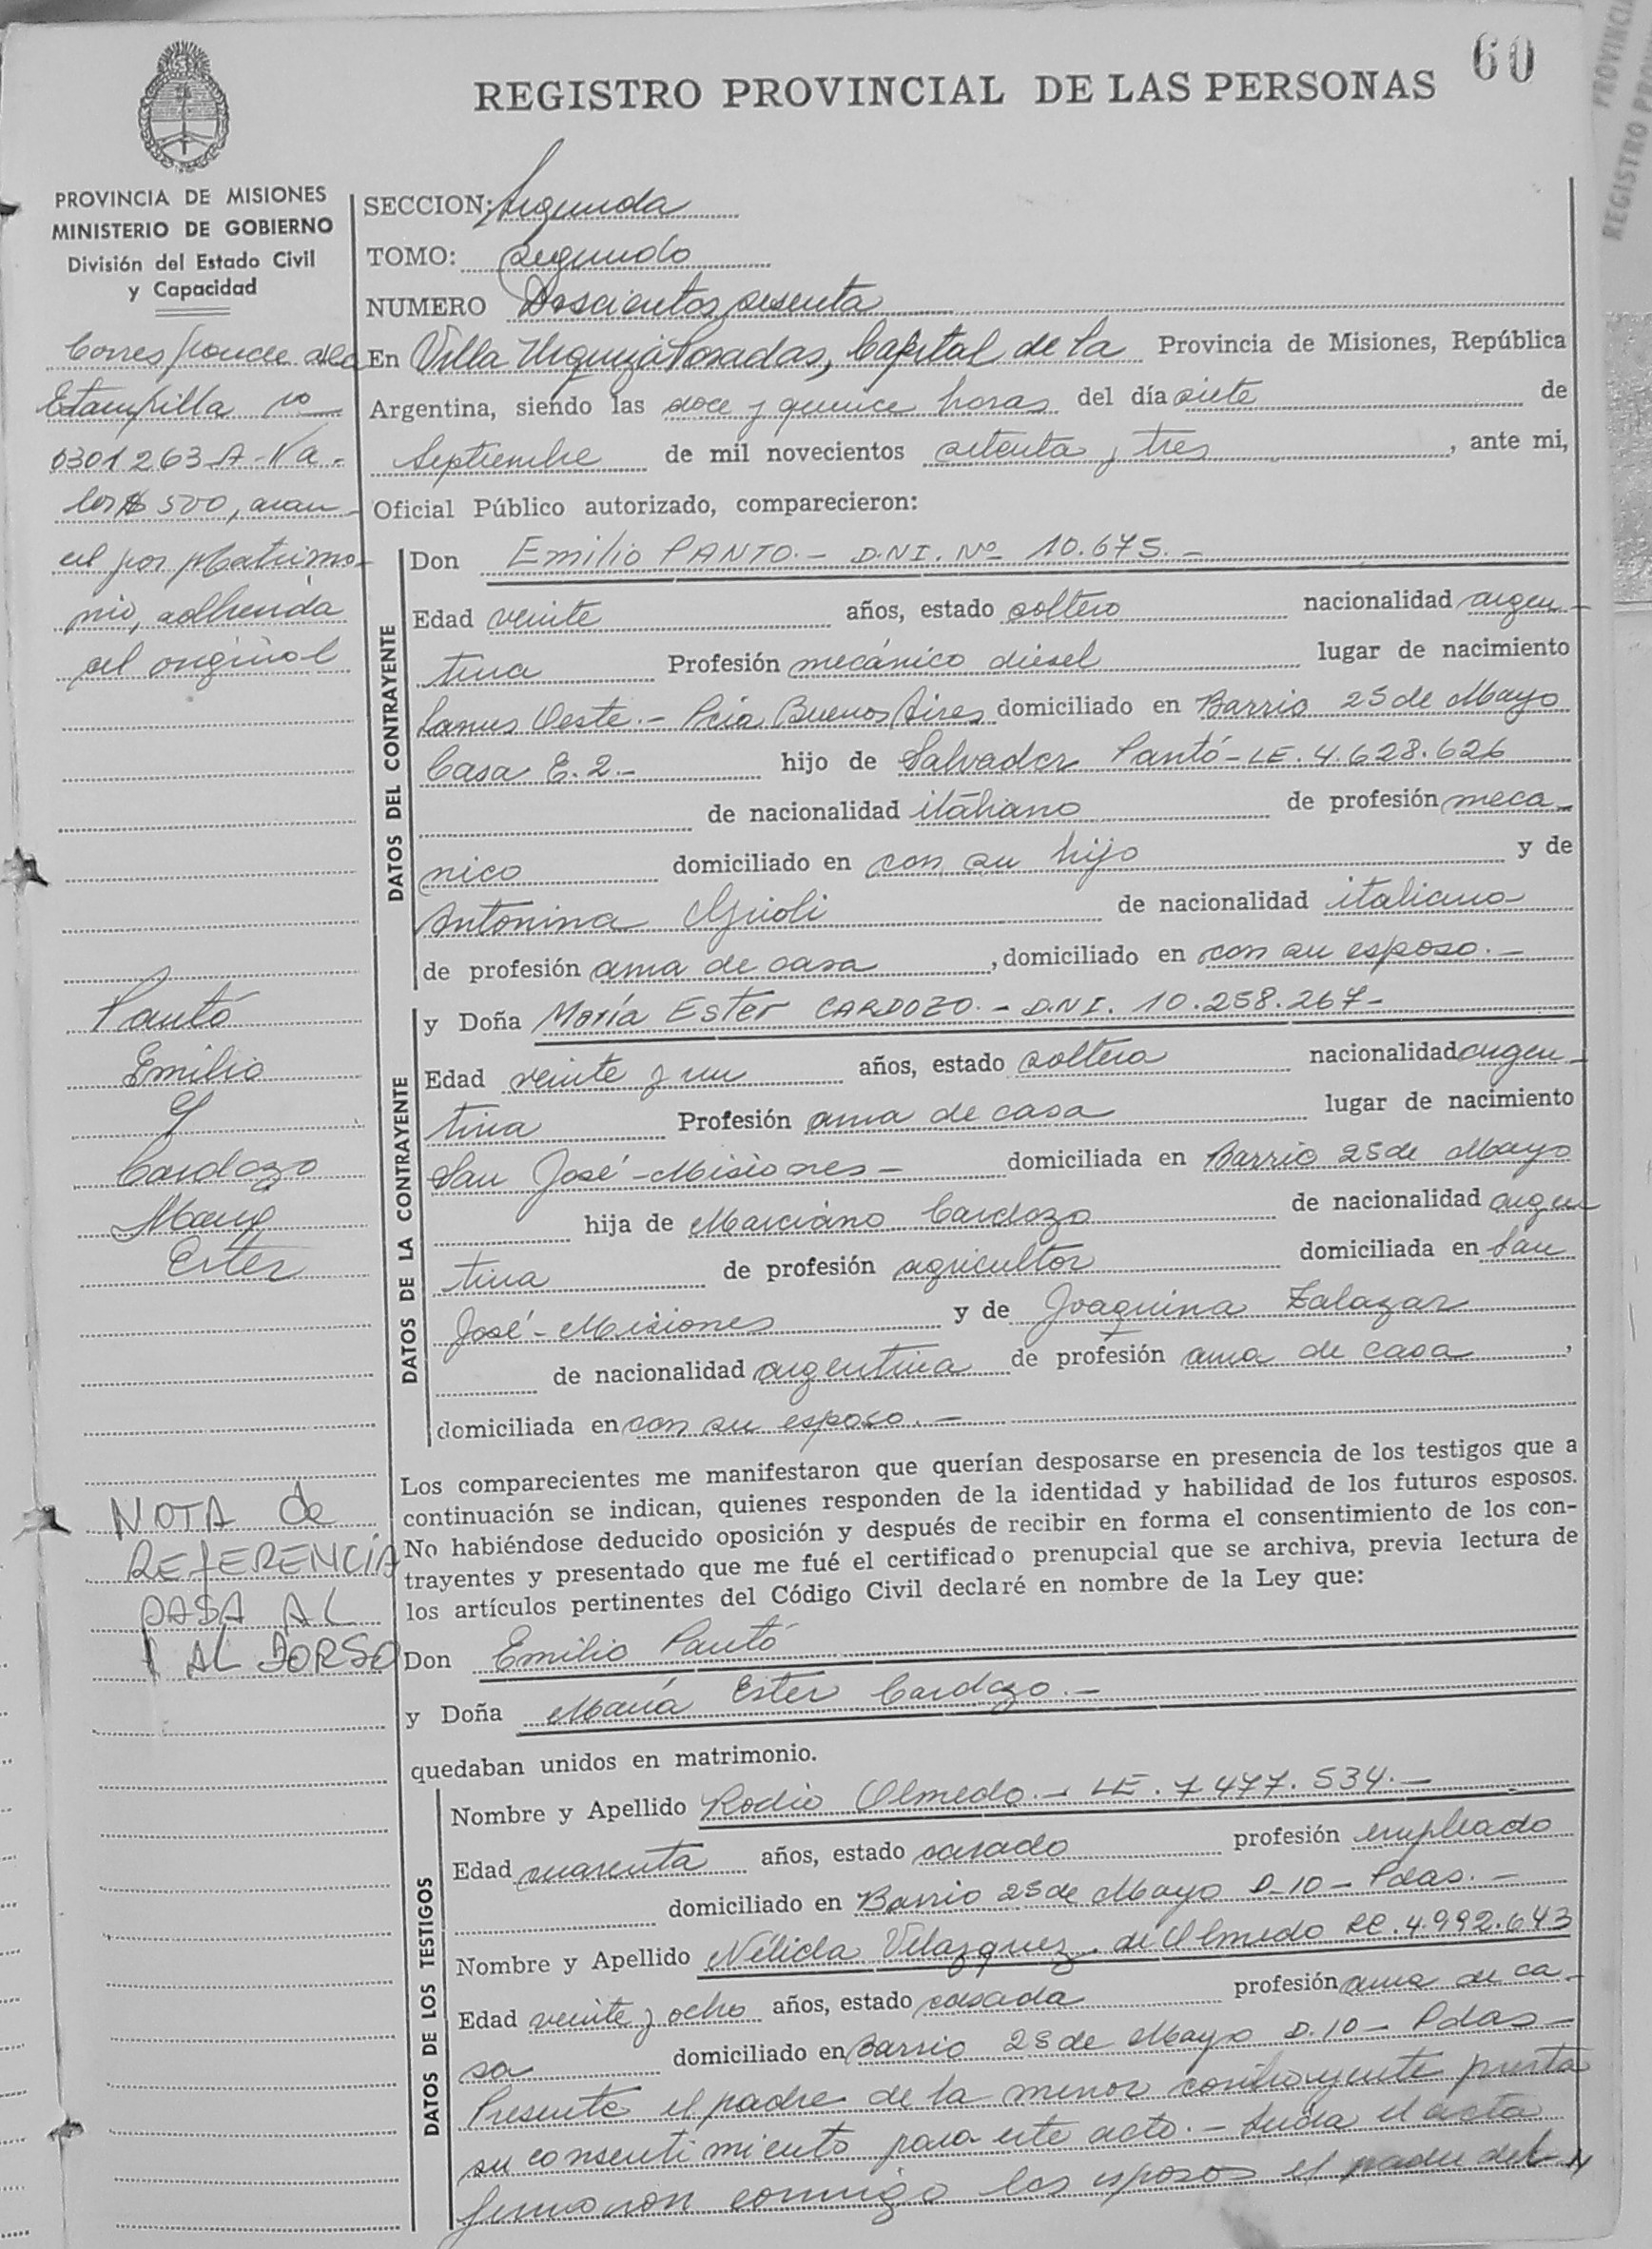 60
REGISTRO PROVINCIAL DE LAS PERSONAS
PROVINCIA DE MISIONES
MINISTERIO DE GOBIERNO
División del Estado Civil
y Capacidad
Corresponde a la
Estampilla nº
0301263 A - Va-
lor $ 500, aran-
cel por Matrimo-
nio, adherida
al original
Pantó
Emilio
y
Cardozo
María
Ester
NOTA de
REFERENCIA
PASA AL
AL DORSO
SECCION: Segunda
TOMO: Segundo
NUMERO Doscientos sesenta
En Villa Urquiza Posadas, Capital de la Provincia de Misiones, República
Argentina, siendo las doce y quince horas del día siete de
Septiembre de mil novecientos setenta y tres, ante mi,
Oficial Público autorizado, comparecieron:
DATOS DEL CONTRAYENTE
Don Emilio PANTO.- D.N.I. Nº 10.675.-
Edad veinte años, estado soltero nacionalidad argen-
tina Profesión mecánico diesel lugar de nacimiento
Lanus Oeste.- Pcia Buenos Aires domiciliado en Barrio 25 de Mayo
Casa E.2.- hijo de Salvador Pantó - LE. 4.628.626
de nacionalidad italiano de profesión meca-
nico domiciliado en con su hijo y de
Antonina de nacionalidad italiana
de profesión ama de casa, domiciliado en con su esposo.-
DATOS DE LA CONTRAYENTE
y Doña María Ester CARDOZO.- D.N.I. 10.258.267-
Edad veinte y un años, estado soltera nacionalidad argen-
tina Profesión ama de casa lugar de nacimiento
San José - Misiones - domiciliada en Barrio 25 de Mayo
hija de Marciano Cardozo de nacionalidad argen
tina de profesión agricultor domiciliada en San
José - Misiones y de Joaquina Zalazar
de nacionalidad argentina de profesión ama de casa,
domiciliada en con su esposo.-
Los comparecientes me manifestaron que querían desposarse en presencia de los testigos que a
continuación se indican, quienes responden de la identidad y habilidad de los futuros esposos.
No habiéndose deducido oposición y después de recibir en forma el consentimiento de los con-
trayentes y presentado que me fué el certificado prenupcial que se archiva, previa lectura de
los artículos pertinentes del Código Civil declaré en nombre de la Ley que:
Don Emilio Pantó
y Doña María Ester Cardozo.-
quedaban unidos en matrimonio.
DATOS DE LOS TESTIGOS
Nombre y Apellido Rodio Olmedo.- LE. 7477.534.-
Edad cuarenta años, estado casado profesión empleado
domiciliado en Barrio 25 de Mayo D-10 - Pdas.-
Nombre y Apellido Nélida Velazquez de Olmedo 4.992.643
Edad veinte y ocho años, estado casada profesión ama de ca-
sa domiciliado en Barrio 25 de Mayo D.10 - Pdas -
Presente el padre de la menor contrayente presta
su consentimiento para este acto.- Leída el acta
firmaron conmigo los esposos el padre del
PROVINCIA
REGISTRO